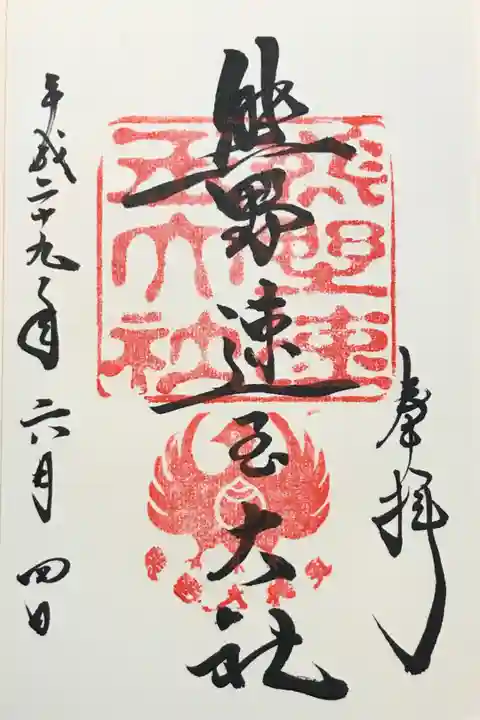 奉拝
熊野速玉大社
熊野速
玉大社
平成二十九年六月四日